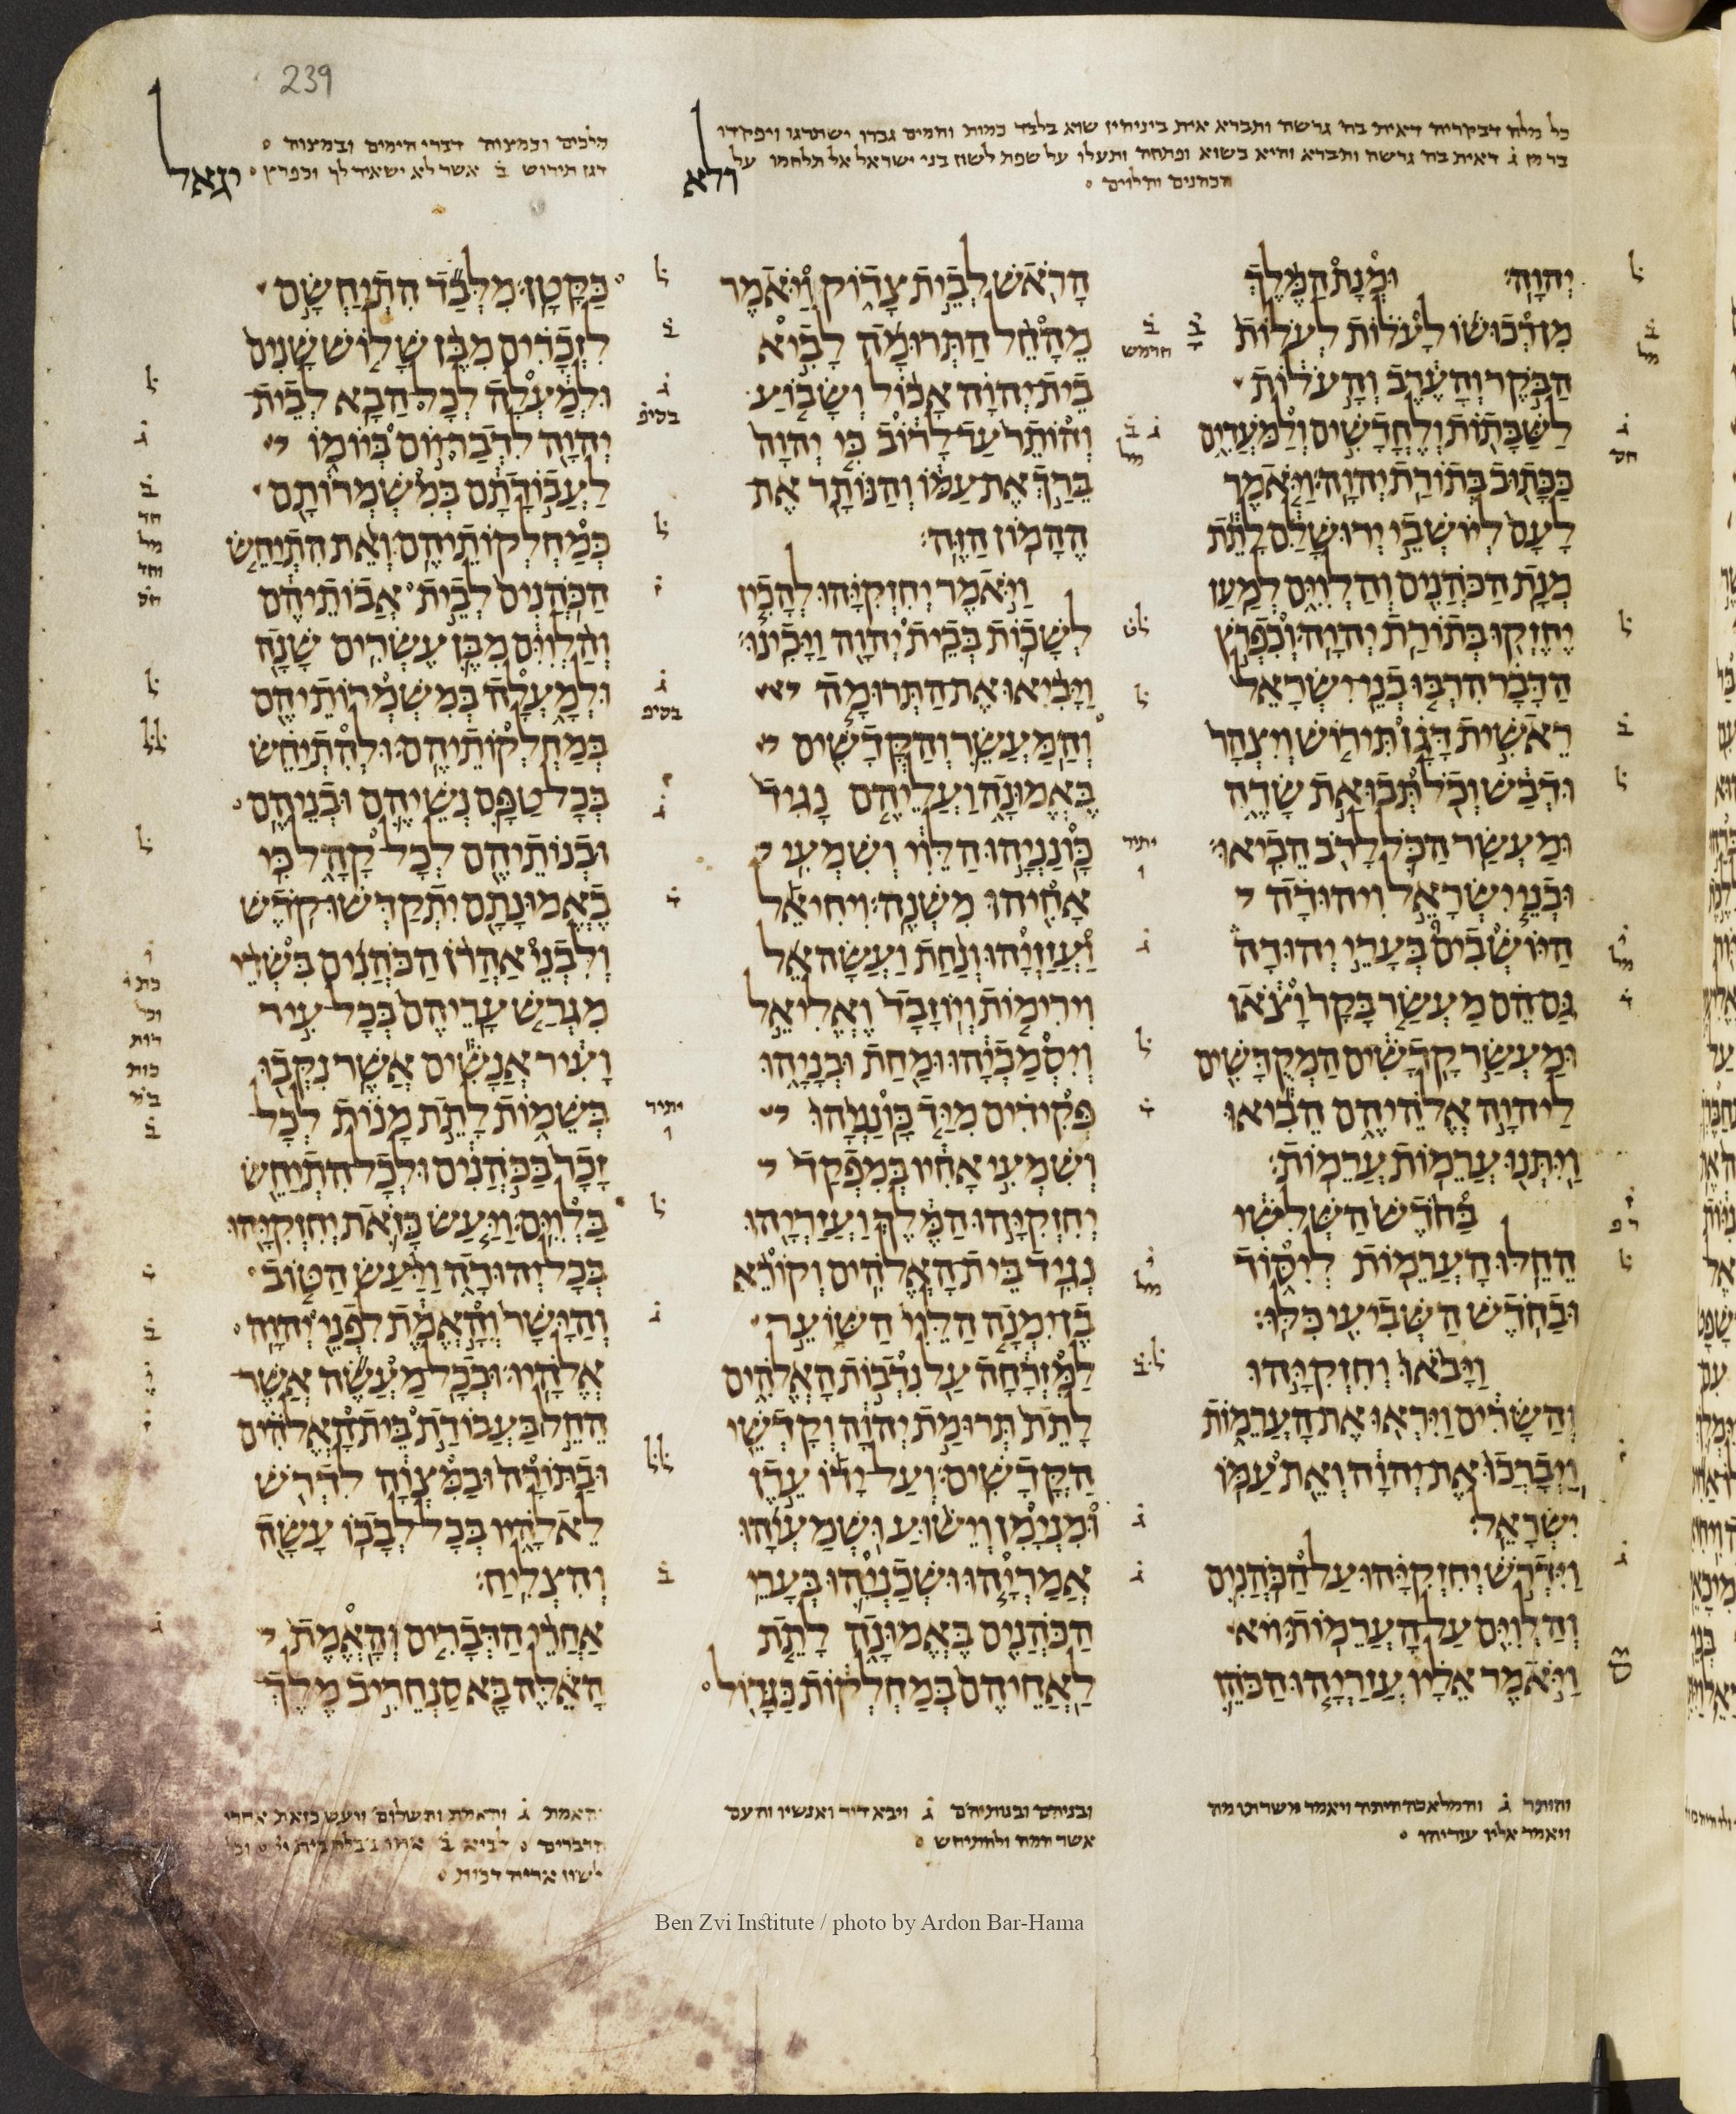 239
כל מלה דבקריה דאית בה גרשה ותברא אית ביניהין שוא בלבד כמות וחמים גברו ישתרגו ויפקדו
בר מן ג דאית בה גרשה ותברא והיא בשוא ופתחה ותעלו על שפת לשון בני ישראל אל תלחמו על
הכהנים והלוים
מלכים וכמצוה דברי הימים ובמצוה
דגן תירוש ב אשר לא ישאיר לך וכפרץ
ולא
יגאל
יהוה׃ ומנת המלך
מן רכושו לעלות לעלות
הבקר והערב והעלות
לשבתות ולחדשים ולמעדים
ככתוב בתורת יהוה׃ ויאמר
לעם ליושבי ירושלם לתת
מנת הכהנים והלוים למען
יחזקו בתורת יהוה׃ וכפרץ
הדבר הרבו בני ישראל
ראשית דגן תירוש ויצהר
ודבש וכל תבואת שדה
ומעשר הכל לרב הביאו׃
ובני ישראל ויהודה
היושבים בערי יהודה
גם הם מעשר בקר וצאן
ומעשר קדשים המקדשים
ליהוה אלהיהם הביאו
ויתנו ערמות ערמות׃
בחדש השלשי
החלו הערמות ליסוד
ובחדש השביעי כלו׃
ויבאו יחזקיהו
והשרים ויראו את הערמות
ויברכו את יהוה ואת עמו
ישראל׃
וידרש יחזקיהו על הכהנים
והלוים על הערמות׃
ויאמר אליו עזריהו הכהן
הראש לבית צדוק ויאמר
מהחל התרומה לביא
בית יהוה אכול ושבוע
והותר עד לרוב כי יהוה
ברך את עמו והנותר את
ההמון הזה׃
ויאמר יחזקיהו להכין
לשכות בבית יהוה ויכינו׃
ויביאו את התרומה
והמעשר והקדשים
באמונה ועליהם נגיד
כונניהו הלוי ושמעי
אחיהו משנה׃ ויחיאל
ועזזיהו ונחת ועשהאל
וירימות ויוזבד ואליאל
ויסמכיהו ומחת ובניהו
פקידים מיד כונניהו
ושמעי אחיו במפקד
יחזקיהו המלך ועזריהו
נגיד בית האלהים׃ וקורא
בן ימנה הלוי השוער
למזרחה על נדבות האלהים
לתת תרומת יהוה וקדשי
הקדשים׃ ועל ידו עדן
ומנימן וישוע ושמעיהו
אמריהו ושכניהו בערי
הכהנים באמונה לתת
לאחיהם במחלקות כגדול
כקטן׃ מלבד התיחשם
לזכרים מבן שלוש שנים
ולמעלה לכל הבא לבית
יהוה לדבר יום ביומו
לעבודתם במשמרותם
כמחלקותיהם׃ ואת התיחש
הכהנים לבית אבותיהם
והלוים מבן עשרים שנה
ולמעלה במשמרותיהם
במחלקותיהם׃ ולהתיחש
בכל טפם נשיהם ובניהם
ובנותיהם לכל קהל כי
באמונתם יתקדשו קדש׃
ולבני אהרן הכהנים בשדי
מגרש עריהם בכל עיר
ועיר אנשים אשר נקבו
בשמות לתת מנות לכל
זכר בכהנים ולכל התיחש
בלוים׃ ויעש כזאת יחזקיהו
בכל יהודה ויעש הטוב
והישר והאמת לפני יהוה
אלהיו׃ ובכל מעשה אשר
החל בעבודת בית האלהים
ובתורה ובמצוה לדרש
לאלהיו בכל לבבו עשה
והצליח׃
אחרי הדברים והאמת
האלה בא סנחריב מלך
והותר ג והמלאכה היתה ויאמר משרתו מה
ויאמר אליו עזריהו
ובניהם ובנותיהם ג ויבא דויד ואנשיו והעם
אשר חמה ולהתיחש
והאמת ג והאמת והשלום ויעש כזאת אחרי
הדברים לביא ב
לשון אריה דכות
Ben Zvi Institute / photo by Ardon Bar-Hama